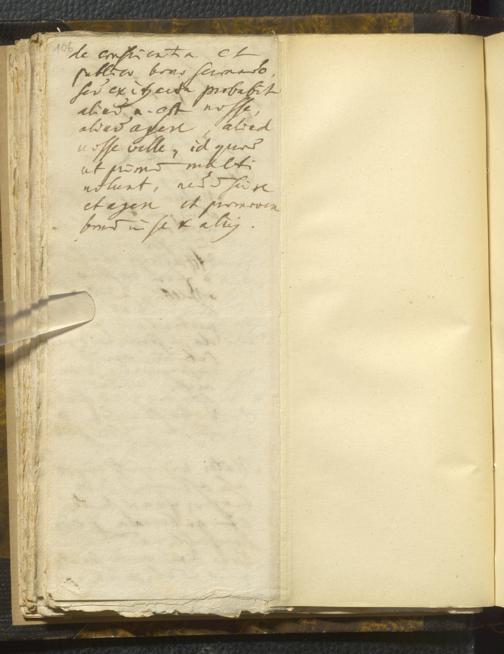 106
de conscientia et
publico bono servando,
sed exitus probabit
aliud n. est nosse,
aliud agere, aliud
nosse velle, id quod
ut primum multi
nolunt, nedum scire
et agere et promovere
bonum in se & aliis.